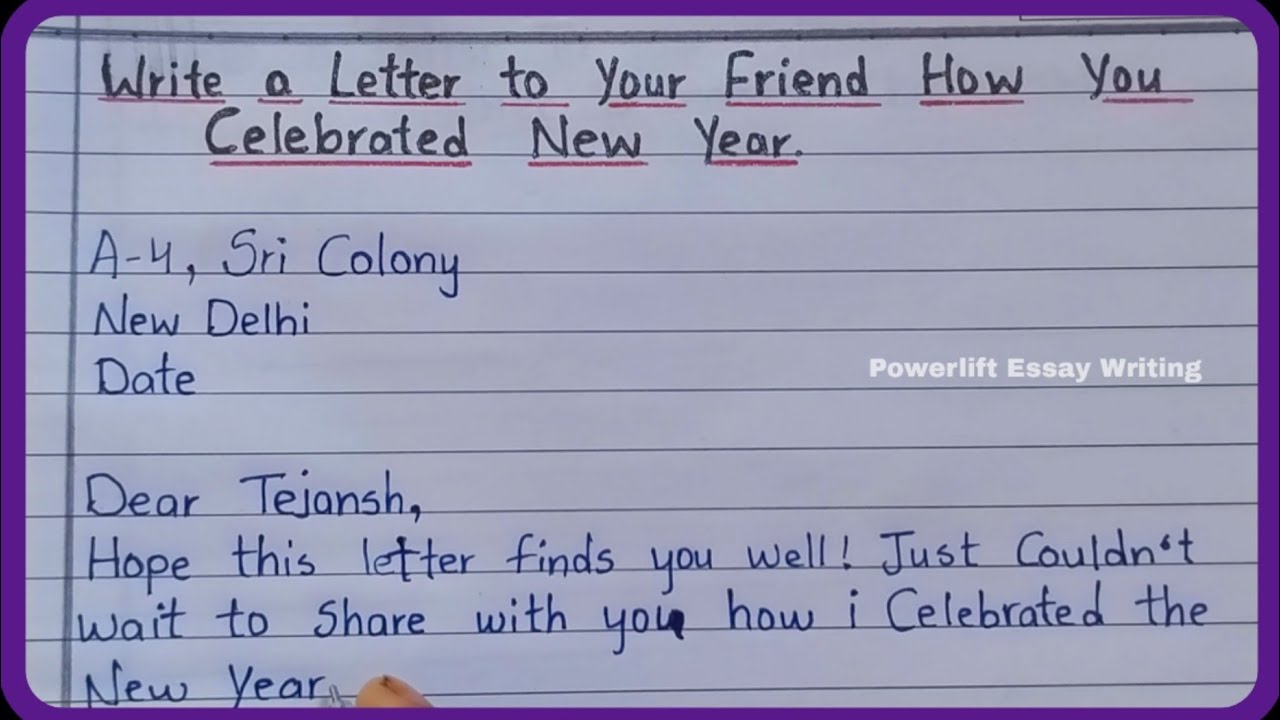 Write a Letter to Your Friend How You
Celebrated New Year.
A-4, Sri Colony
New Delhi
Date
Powerlift Essay Writing
Dear Tejansh,
Hope this letter finds you well! Just Couldn't
wait to Share with you how i Celebrated the
New Year